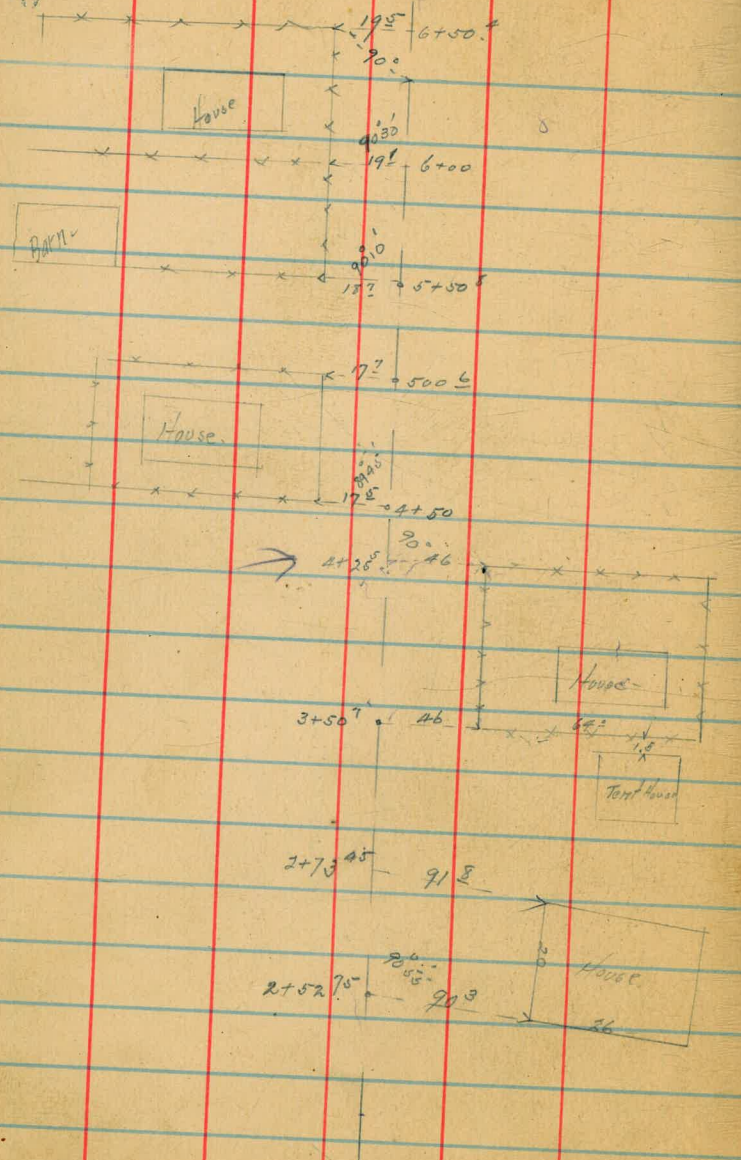 19⁵ 6+50.⁴
90°
House
90°30'
19¹ 6+00
Barn
90°10'
18⁷ 5+50⁸
17⁷ 500⁶
House.
89°45'
17⁵ 4+50
90°
4+25⁵ 46
House
3+50⁷ 46 64²
1.8
Tent House
2+73⁴⁵ 91⁸
20 House
90°55'
2+52⁷⁵ 90³
26